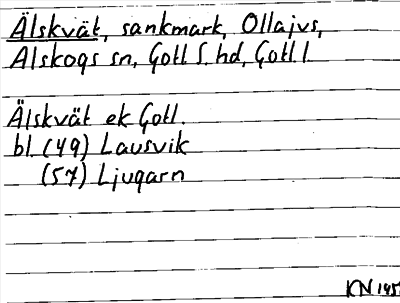 Älskvät, sankmark, Ollajvs,
Alskogs sn, Gotl S. hd, Gotl l
Älskvät ek Gotl.
bl. (49) Lausvik
(57) Ljugarn
KN 195